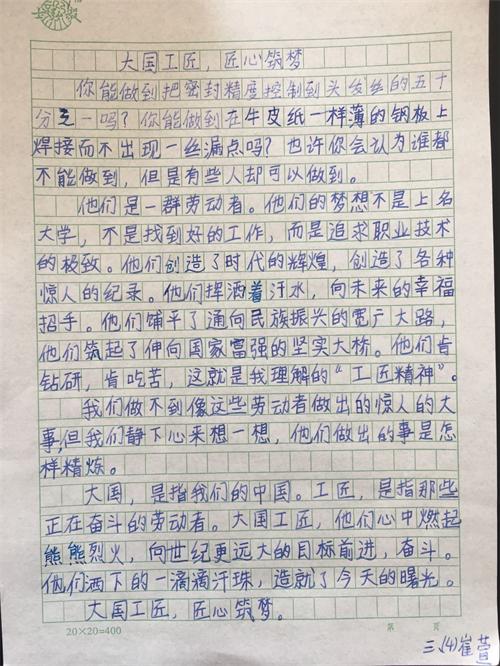 大国工匠，匠心筑梦
你能做到把密封精度控制到头发丝的五十
分之一吗？你能做到在牛皮纸一样薄的钢板上
焊接而不出现一丝漏点吗？也许你会认为谁都
不能做到，但是有些人却可以做到。
他们是一群劳动者。他们的梦想不是上名
大学，不是找到好的工作，而是追求职业技术
的极致。他们创造了时代的辉煌，创造了各种
惊人的纪录。他们挥洒着汗水，向未来的幸福
招手。他们铺平了通向民族振兴的宽广大路，
他们筑起了伸向国家富强的坚实大桥。他们肯
钻研，肯吃苦，这就是我理解的“工匠精神”。
我们做不到像这些劳动者做出的惊人的大
事，但我们静下心来想一想，他们做出的事是怎
样精炼。
大国，是指我们的中国。工匠，是指那些
正在奋斗的劳动者。大国工匠，他们心中燃起
熊熊烈火，向世纪更远大的目标前进，奋斗。
他们洒下的一滴滴汗珠，造就了今天的曙光。
大国工匠，匠心筑梦。
20×20=400 第 页
三、(4)崔萱